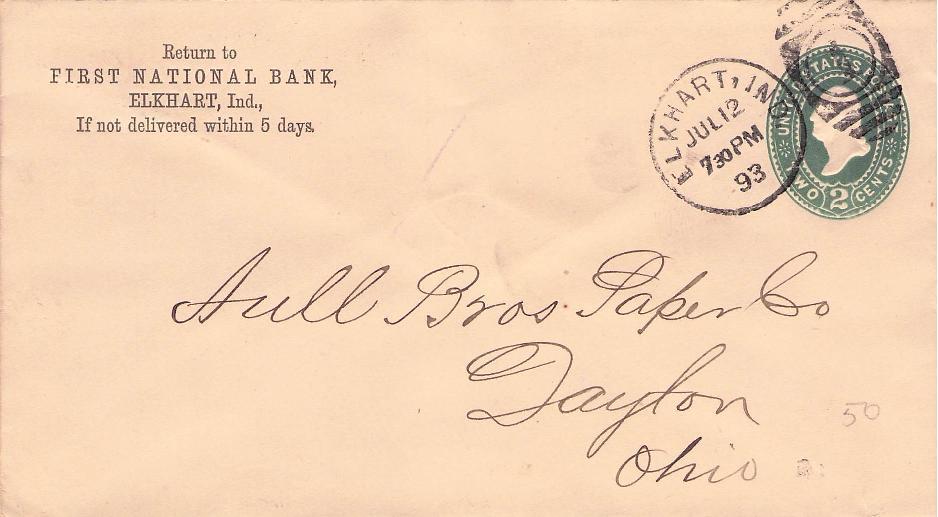 Return to
FIRST NATIONAL BANK,
ELKHART, Ind.,
If not delivered within 5 days.
ELKHART, IND
JUL 12
730PM
93
UNITED STATES
TWO 2 CENTS
Aull Bros Paper Co
Dayton
Ohio
50